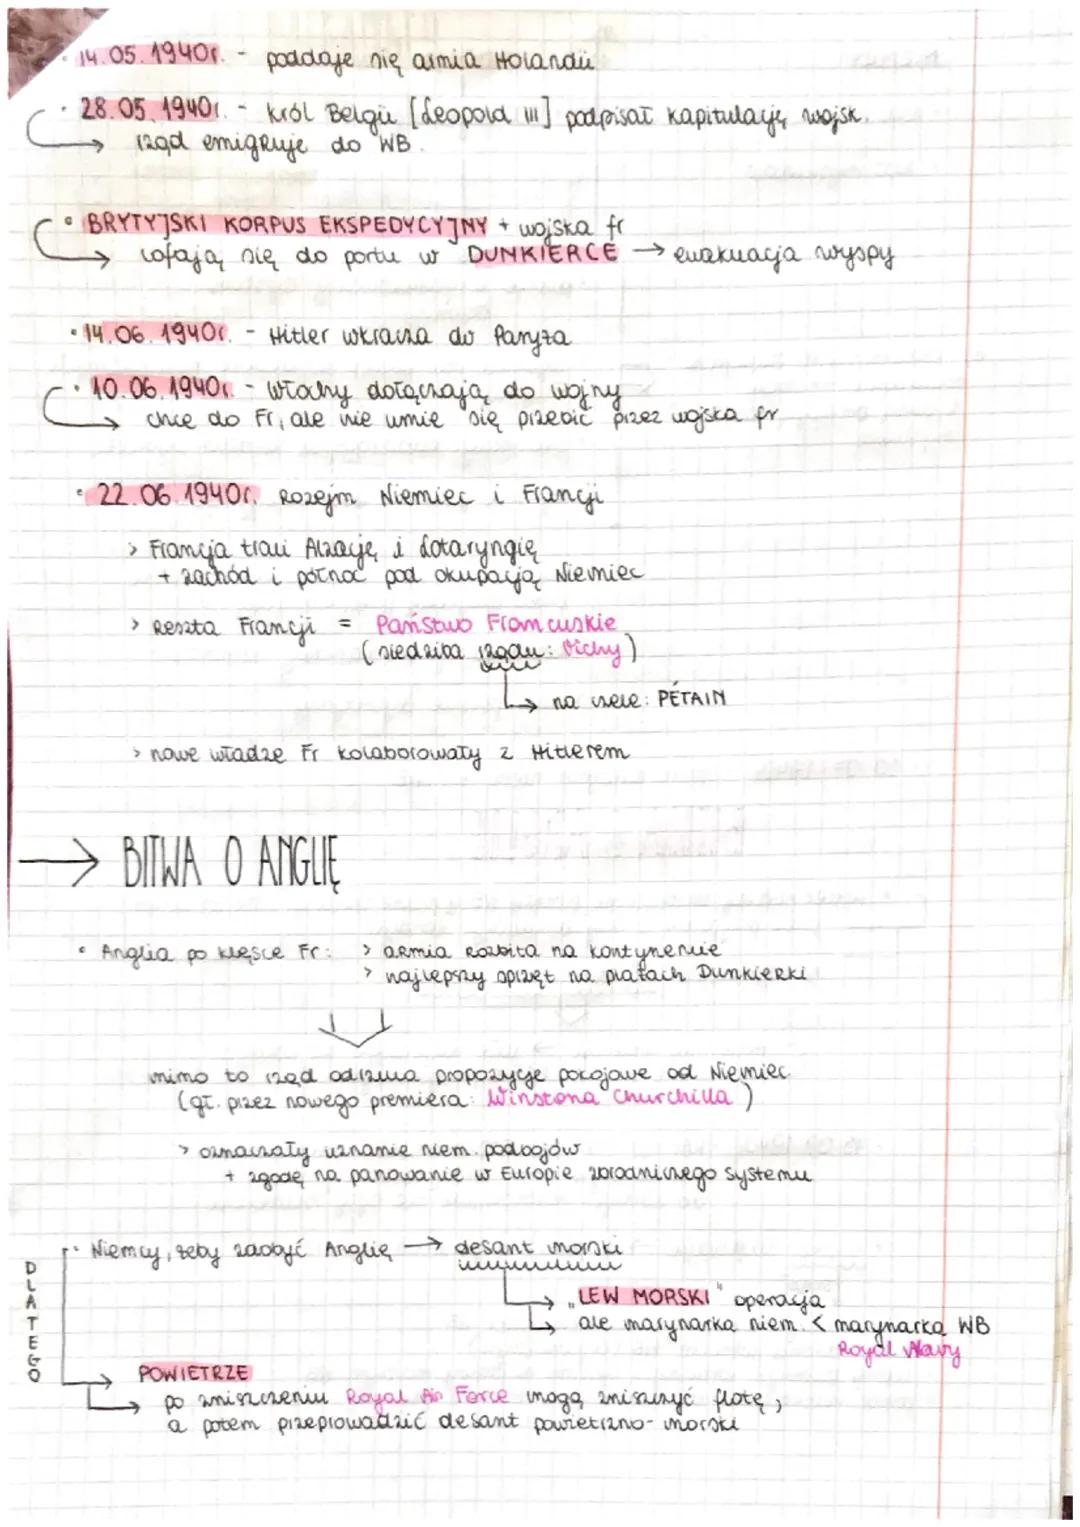 • 14.05.1940r. - poddaje się armia Holandii
• 28.05.1940r. - król Belgii [Leopold III] podpisał kapitulację wojsk.
→ rząd emigruje do WB.
• BRYTYJSKI KORPUS EKSPEDYCYJNY + wojska fr
→ cofają się do portu w DUNKIERCE → ewakuacja wyspy
• 14.06.1940r. - Hitler wkracza do Paryża
• 10.06.1940r. - Włochy dołączają do wojny
→ chce do Fr, ale nie umie się przebić przez wojska fr
• 22.06.1940r. Rozejm Niemiec i Francji
> Francja traci Alzację i Lotaryngię
+ zachód i północ pod okupacją Niemiec
> Reszta Francji = Państwo Francuskie
(siedziba rządu: Vichy)
→ na czele: PÉTAIN
> nowe władze Fr kolaborowały z Hitlerem
→ BITWA O ANGLIĘ
• Anglia po klęsce Fr: > armia rozbita na kontynencie
> najlepszy sprzęt na plażach Dunkierki
mimo to rząd odrzuca propozycje pokojowe od Niemiec
(gł. przez nowego premiera: Winstona Churchilla)
> oznaczały uznanie niem. podbojów
+ zgodę na panowanie w Europie zbrodniczego systemu
• Niemcy, żeby zdobyć Anglię → desant morski
DLATEGO
→ „LEW MORSKI" operacja
→ ale marynarka niem. < marynarka WB
Royal Navy
→ POWIETRZE
→ po zniszczeniu Royal Air Force mogą zniszczyć flotę,
a potem przeprowadzić desant powietrzno-morski